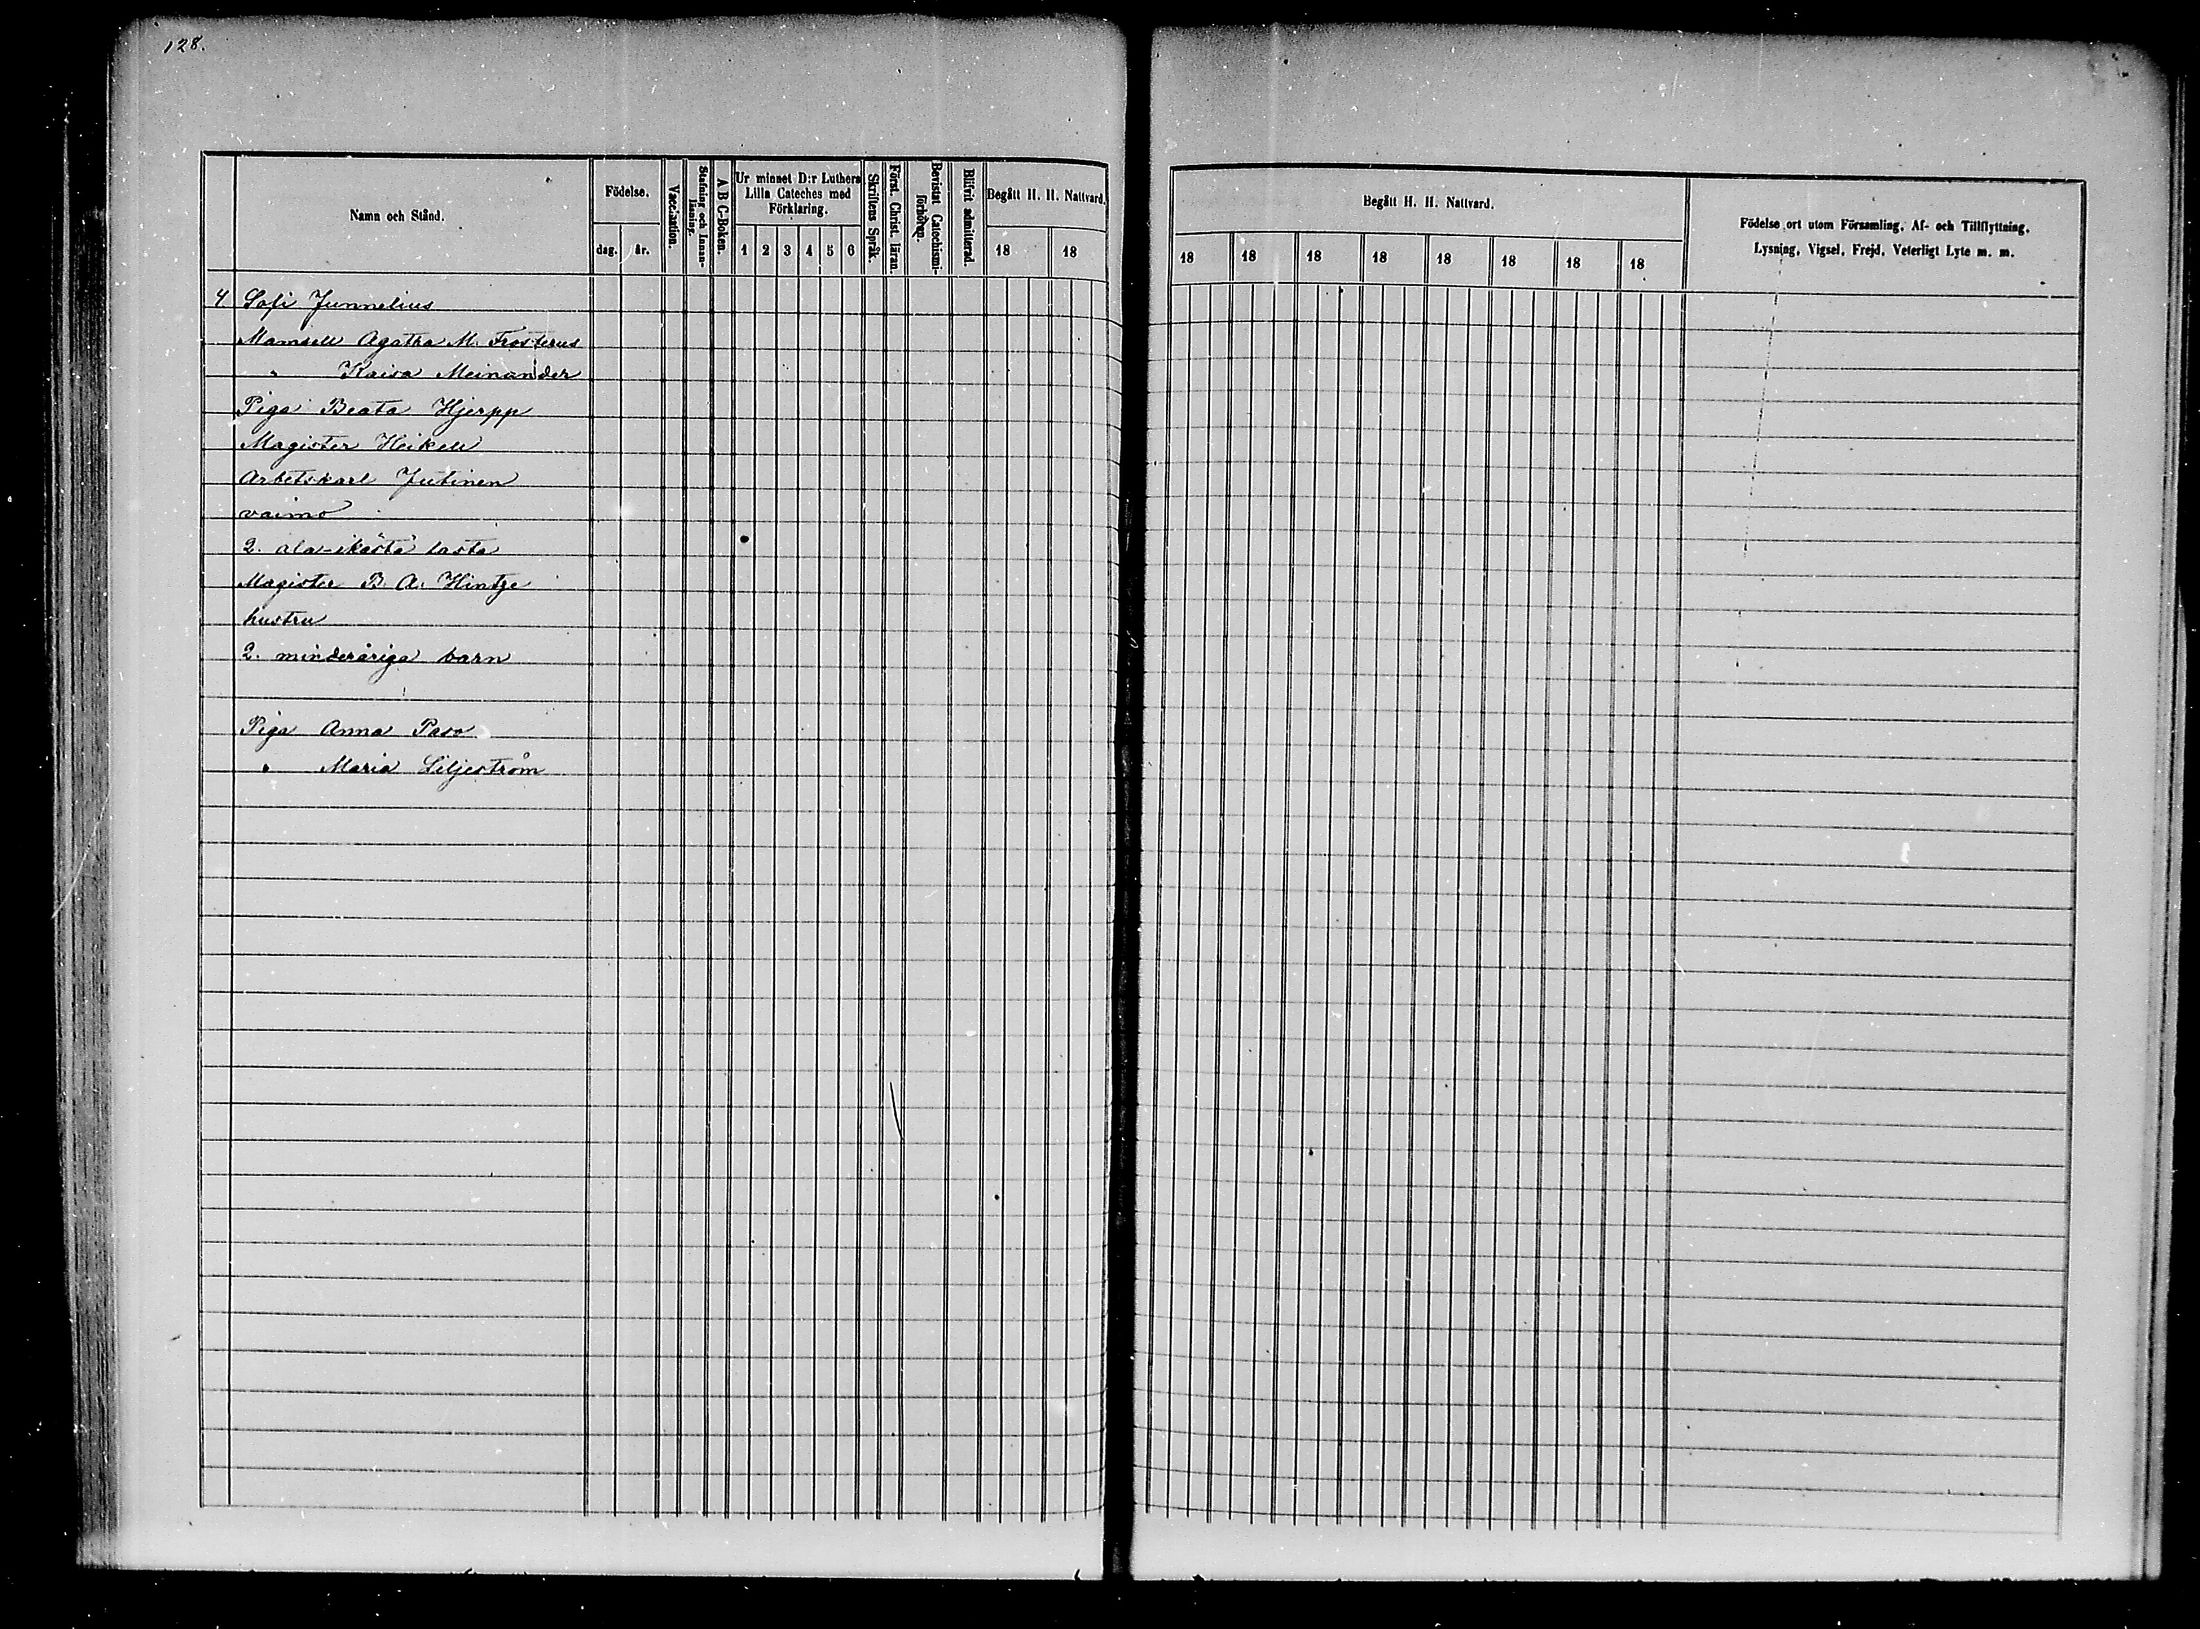 128.
Namn och Stånd.
Födelse.
dag. år.
Vaccination.
Stafning och Innan-
läsning.
A B C-Boken.
Ur minnet D:r Luthers
Lilla Cateches med
Förklaring.
1 2 3 4 5 6
Skriftens Språk.
Först. Christ. läran.
Bevistat Catechismi-
förhören.
Blifvit admitterad.
Begått H. H. Nattvard.
18 18
Begått H. H. Nattvard.
18 18 18 18 18 18 18 18
Födelse ort utom Församling, Af- och Tillflyttning,
Lysning, Vigsel, Frejd, Veterligt Lyte m. m.
4 Sofi Junnelius
Mamsell Agatha M. Frosterus
" Kaisa Meinander
Piga Beata Hjerpp
Magister Heikell
Arbetskarl Jutinen
vaimo
2. ala-ikäistä lasta
Magister B. A. Hintze
hustru
2. minderåriga barn
Piga Anna Paso
" Maria Liljeström